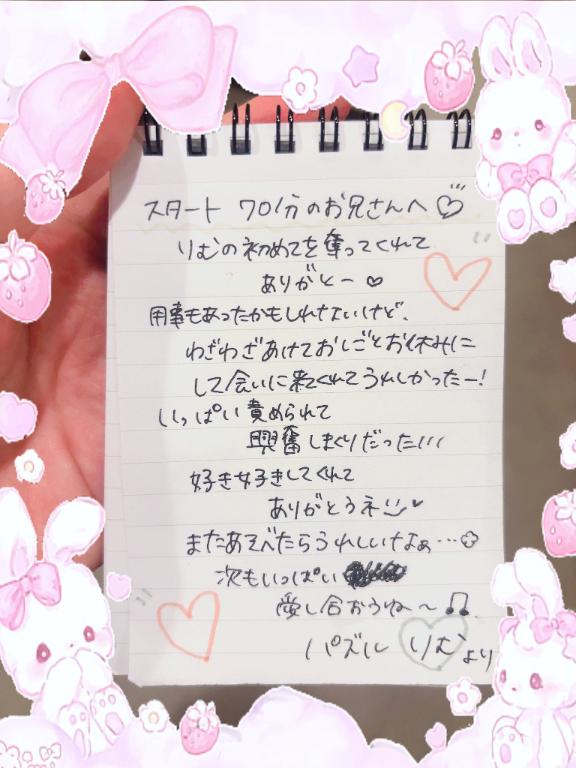 スタート 70分のお兄さんへ♡
りむの初めてを奪ってくれて
ありがとー♡
用事もあったかもしれないけど、
わざわざあけておしごとお休みに
して会いに来てくれてうれしかったー!
いっぱい責められて
興奮しまくりだった!!!
好き好きしてくれて
ありがとうネ
またあそべたらうれしいなぁ…
次もいっぱい
愛し合おうね〜♫
パズル りむより